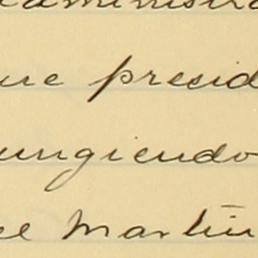 administra
ue presid
ungiendo
el Martin